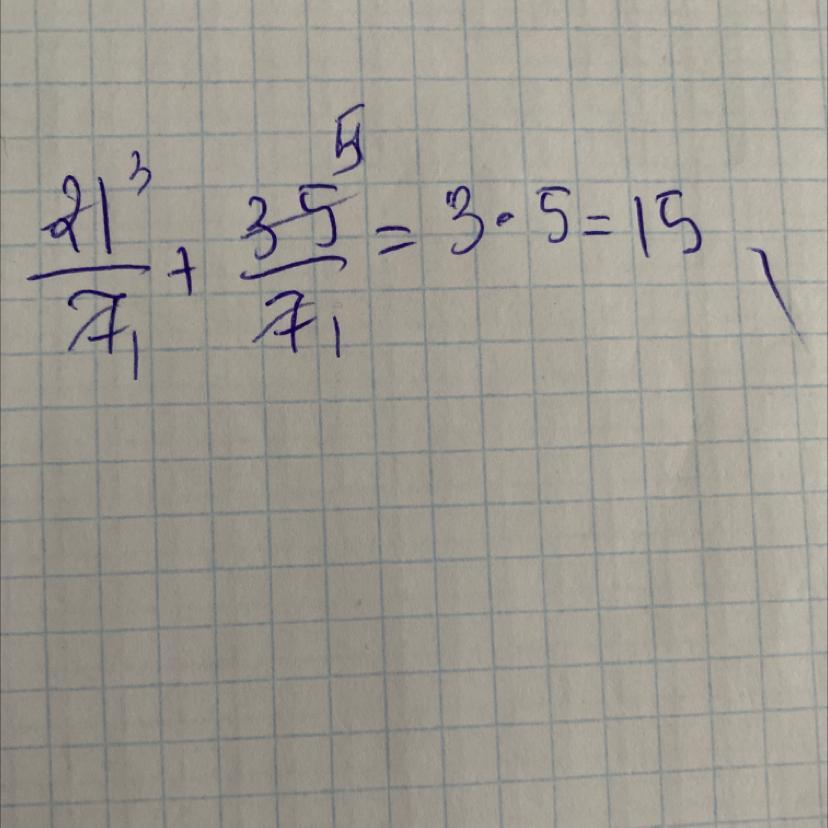 21³/7₁ + 35⁵/7₁ = 3 · 5 = 15 \